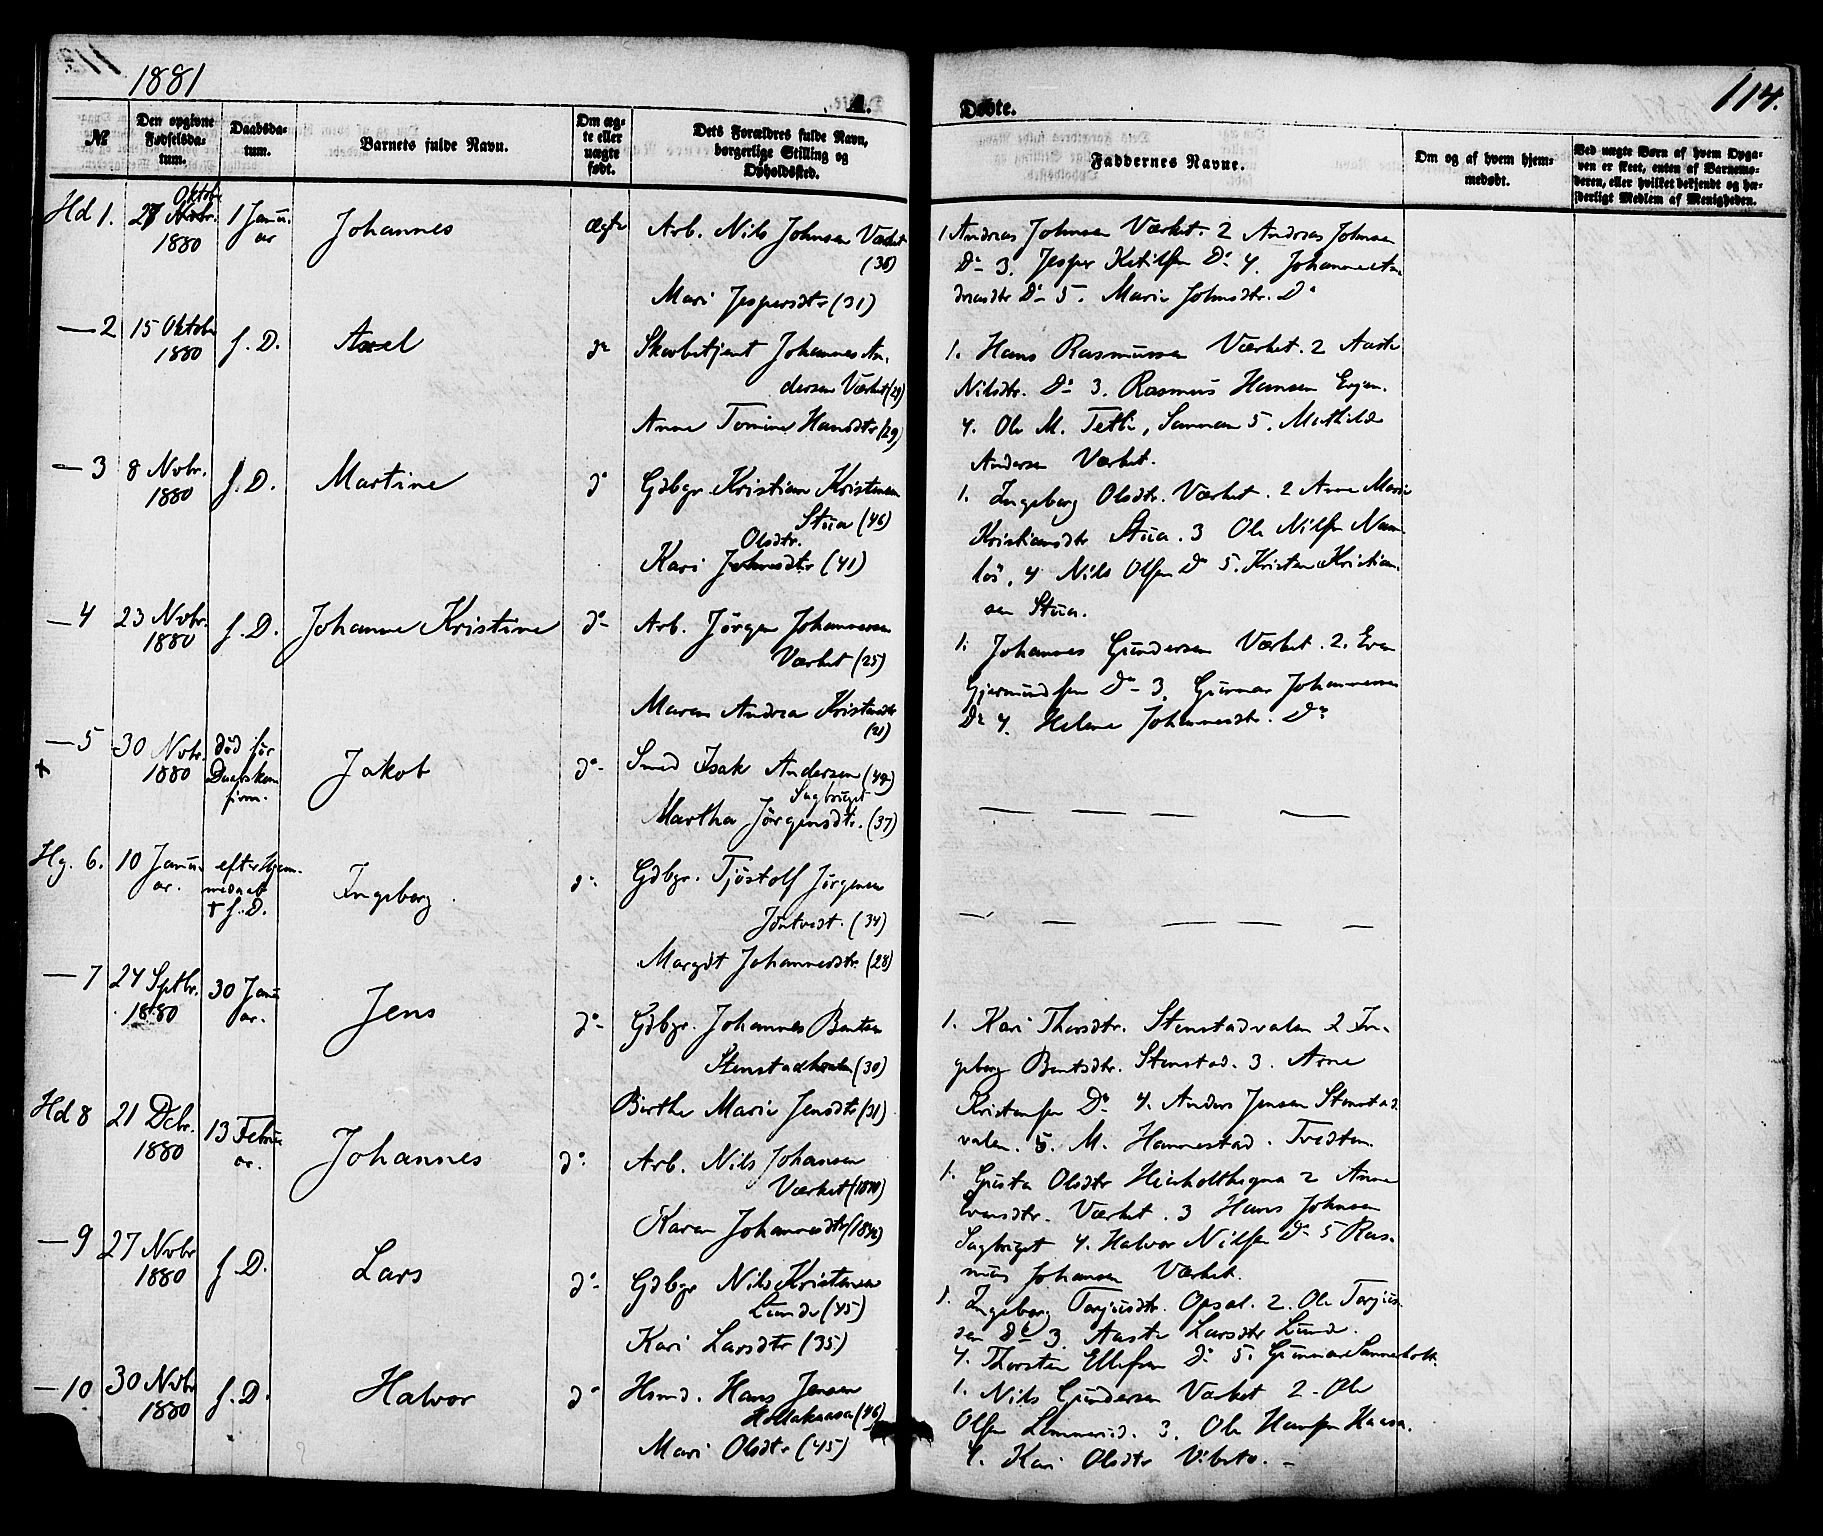 1881
114.
A.
Døbte.
№
Den opgivne Fødselsdatum.
Daabsdatum.
Barnets fulde Navn.
Om ægte eller uægte født.
Dets Forældres fulde Navn, borgerlige Stilling og Opholdssted.
Faddernes Navne.
Om og af hvem hjemmedøbt.
Ved uægte Børn af hvem Opgaven er skeet, enten af Barnemoderen, eller hvilket bekjendt og hæderligt Medlem af Menigheden.
Hd 1.
27 Oktobr.
1880
1 Janu-
ar
Johannes
ægte
Arb. Nils Johnsen Værket
(36)
Mari Jespersdtr (31)
1 Andreas Johnsen Værket. 2 Andreas Johnsen
Do 3. Jesper Ketilsen Do 4. Johanne An-
dreasdtr Do 5. Marie Johnsdtr. Do
— 2
15 Oktobr
1880
f. D.
Axel
do
Skovbetjent Johannes An-
dersen Værket (29)
Anne Tomine Hansdtr (29)
1. Hans Rasmussen Værket. 2 Aaste
Nilsdtr. Do 3. Rasmus Hansen
4. Ole M. Tetli, 5. Mathilde
Andersen Værket.
— 3
8 Novbr.
1880
f. D.
Martine
do
Gdbgr Kristian Kristensen
Stua (46)
Olsdtr.
Kari Johnsdtr (41)
1. Ingeborg Olsdtr. Værket. 2 Anne Marie
Kristiansdtr Stua. 3 Ole Nilsen Nam-
løs. 4 Nils Olsen Do 5. Kristen Kristian-
sen Stua.
— 4
23 Novbr.
1880
f. D.
Johanne Kristine
do
Arb. Jørgen Johannesen
Værket (25)
Maren Andrea Kristensdtr
(21)
1. Johannes Gundersen Værket. 2. Even
Gjermundsen Do 3. Gunnar Johannesen
Do 4. Helene Johannesdtr. Do
— 5
+
30 Novbr.
1880
død før
Daabskon-
firm.
Jakob
do
Smed Isak Andersen (42)
Sagbruget
Martha Jørgensdtr. (37)
— — — —
Hg. 6.
10 Janu-
ar.
efter Hjem-
medaab
+ f. D.
Ingeborg
do
Gdbgr. Tjøstolf Jørgensen
Jøntvedt. (34)
Margit Johannesdtr. (28)
— — — —
— 7
24 Septbr.
1880
30 Janu-
ar.
Jens
do
Gdbgr. Johannes Bentsen
Stenstadhvalen (30)
Birthe Marie Jensdtr (31)
1. Kari Thorsdtr. Stenstadvalen 2 In-
geborg Bentsdtr. Stenstad. 3. Arne
Kristensen Do 4. Anders Jensen Stenstad-
valen. 5. M. Hannestad.
Hd 8
21 Dcbr.
1880
13 Febru-
ar.
Johannes
do
Arb. Nils Johansen
Værket
Karen Johannesdtr
1. Gusta Olsdtr 2 Anne
Evensdtr. Værket. 3 Hans Johnsen
Sagbruget 4. Halvor Nilsen Do 5 Ras-
mus Johansen Værket.
— 9
27 Novbr
1880
f. D.
Lars
do
Gdbgr Nils Kristensen
Lunde (45)
Kari Larsdtr (35)
1. Ingeborg Torjusdtr. Opsal. 2. Ole Torjus-
sen Do 3. Aaste Larsdtr Lunde.
4. Thorsten Ellefsen Do 5. Gunnar Sanneholt.
— 10
30 Novbr
1880
f. D.
Halvor
do
Hsmd. Hans Jensen
Hollakaasa (46)
Mari Olsdtr (45)
1. Nils Gundersen Værket 2. Ole
Olsen 3. Ole Hansen Kaasa.
4. Kari Olsdtr Vibeto. —